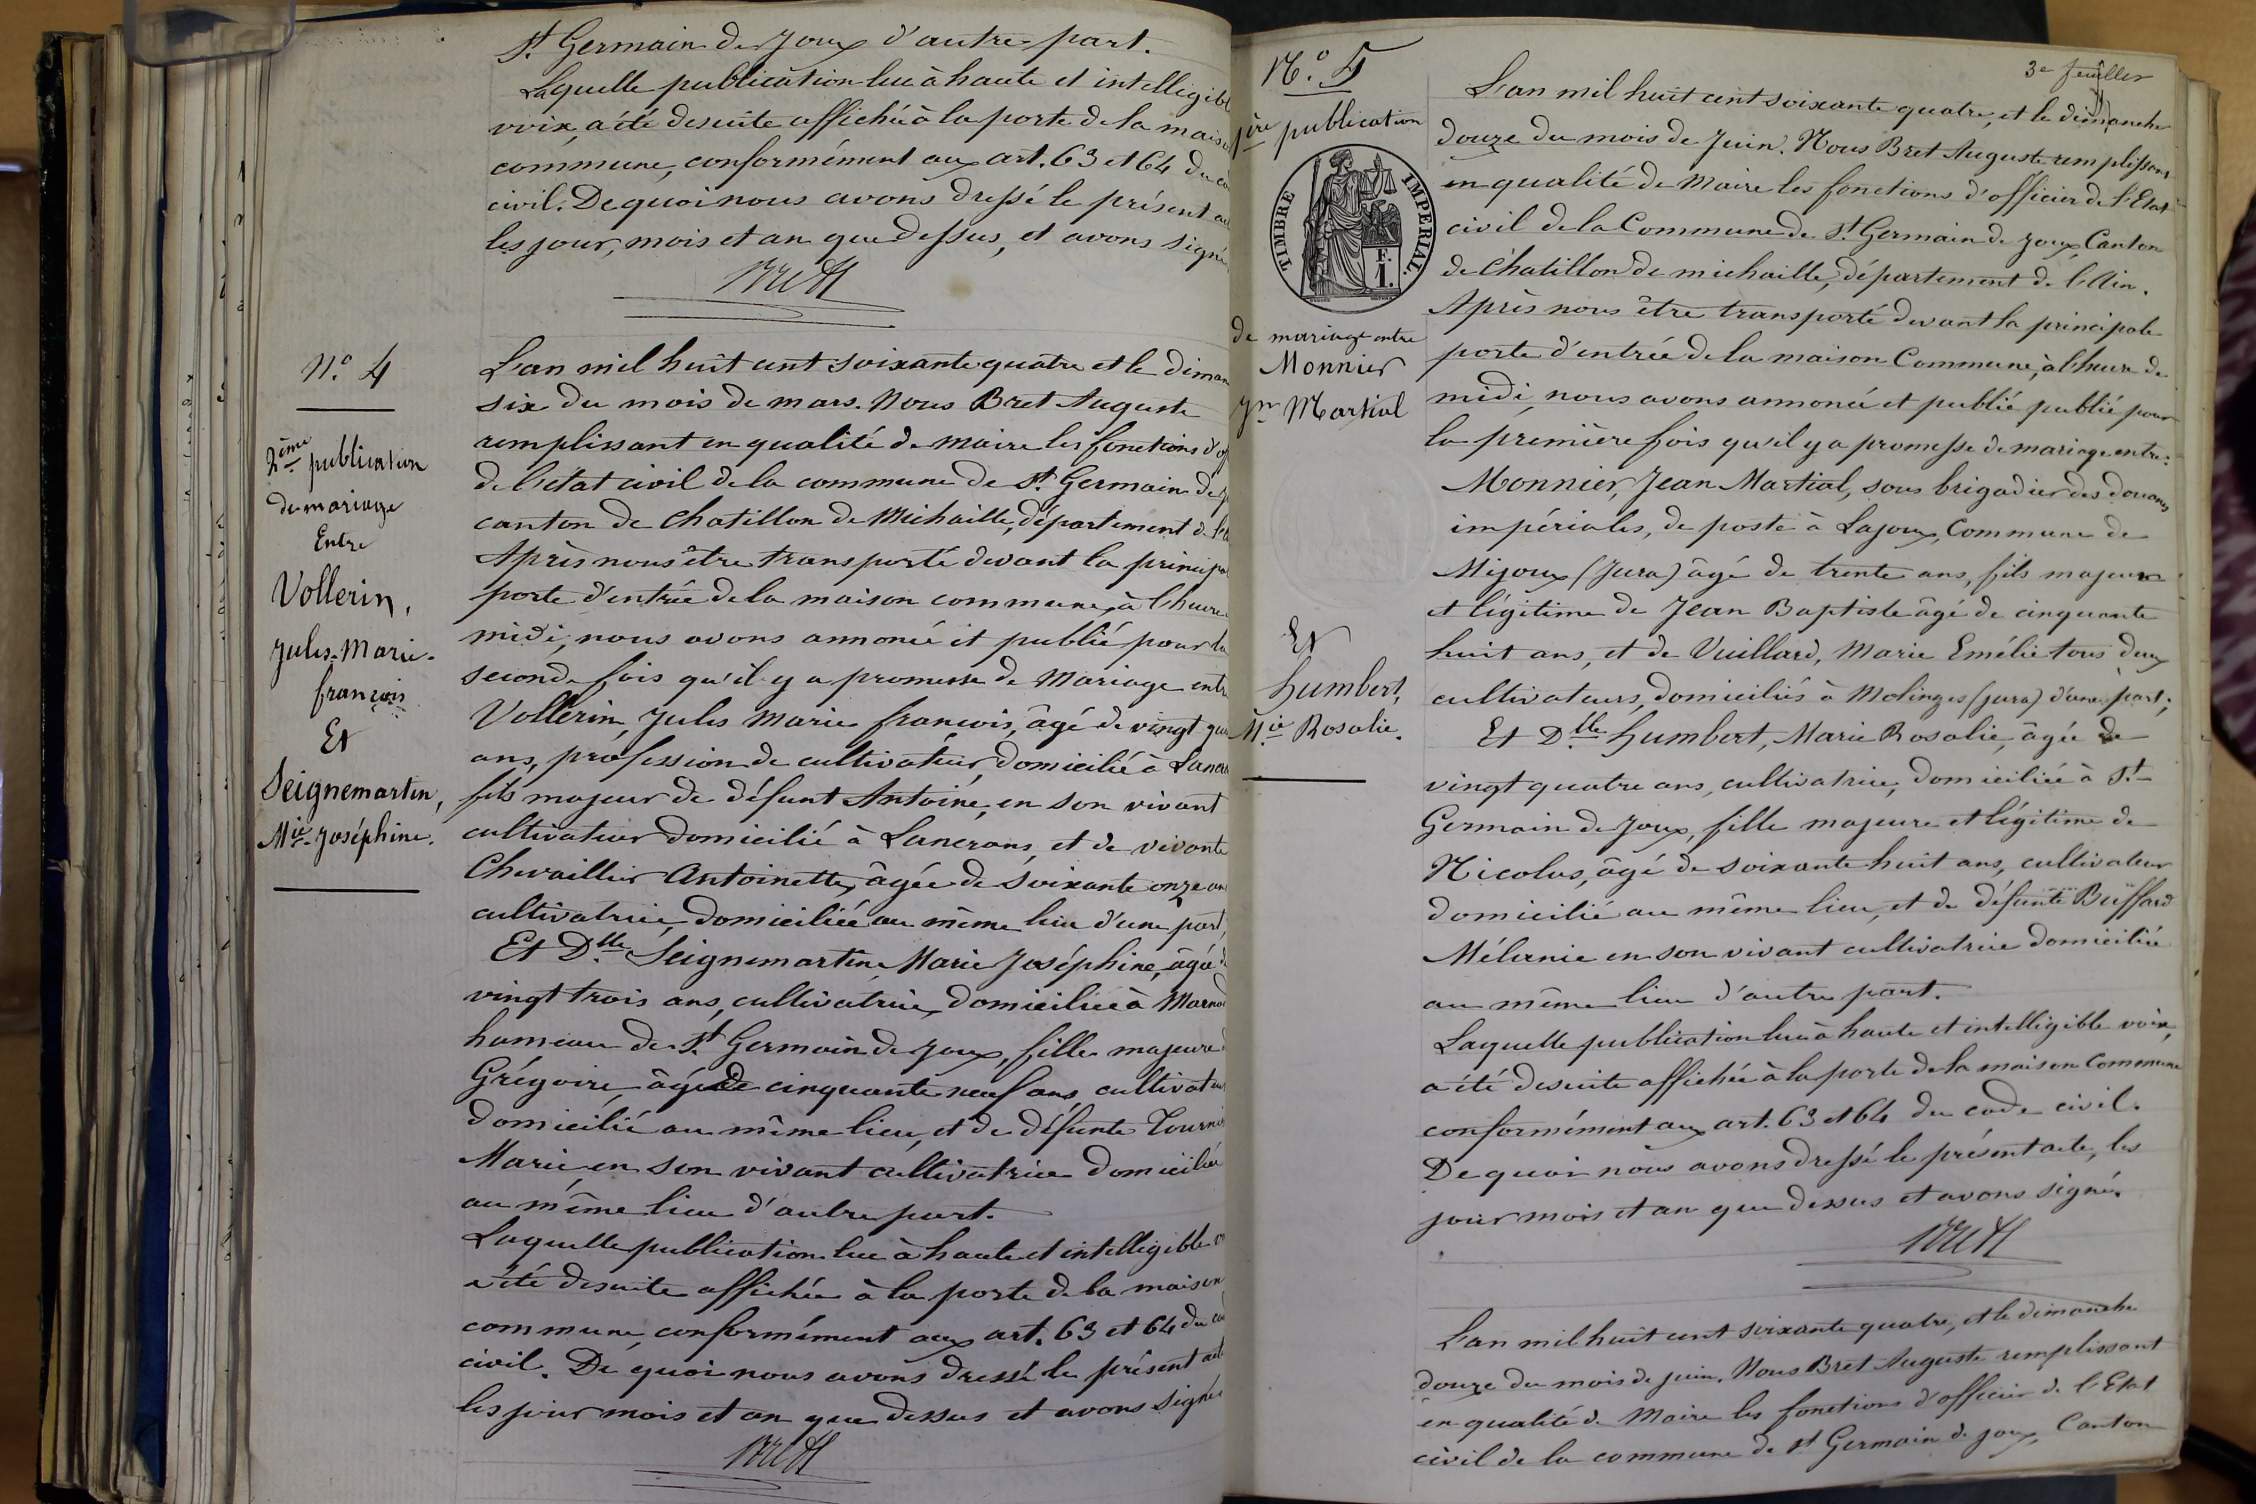 St Germain de Joux d'autre part.
Laquelle publication lue à haute et intelligible
voix, a été desuite affichée à la porte de la maison
commune, conformément aux art. 63 et 64 du
civil. De quoi nous avons dressé le présent
les jour, mois et an que dessus, et avons signé
Bret
N.o 4
2ème publication
de mariage
Entre
Vollerin,
Jules-Marie-
françois
Et
Seignemartin,
Mie Joséphine.
L'an mil huit cent soixante quatre et le
six du mois de mars. Nous Bret Auguste
remplissant en qualité de maire les fonctions
de l'état civil de la commune de St Germain de
canton de Chatillon de Michaille, département de
Après nous être transporté devant la
porte d'entrée de la maison commune, à l'heure
midi, nous avons annoncé et publié pour la
seconde fois qu'il y a promesse de Mariage entre
Vollerin, Jules Marie françois, âgé de vingt
ans, profession de cultivateur, domicilié à
fils majeur de défunt Antoine, en son vivant
cultivateur domicilié à Lancrans, et de vivante
Chevaillier Antoinette, âgée de soixante onze ans
cultivatrice, domiciliée au même lieu d'une part,
Et Dlle Seignemartin Marie Joséphine, âgée de
vingt trois ans, cultivatrice, domiciliée à
hameau de St Germain de Joux, fille majeure
Grégoire, âgé de cinquante neuf ans, cultivateur
domicilié au même lieu, et de défunte
Marie, en son vivant cultivatrice domiciliée
au même lieu d'autre part.
Laquelle publication lue à haute et intelligible
a été desuite affichée à la porte de la maison
commune, conformément aux art. 63 et 64 du
civil. De quoi nous avons dressé le présent
les jour mois et an que dessus et avons signé
Bret
3e feuillet
N.o 5
1ère publication
TIMBRE IMPERIAL.
F.
1.
de mariage entre
Monnier
Jn Martial
Et
humbert,
Mie Rosalie.
L'an mil huit cent soixante quatre, et le dimanche
douze du mois de Juin. Nous Bret Auguste remplissant
en qualité de Maire les fonctions d'officier de l'Etat
civil de la Commune de St Germain de Joux, Canton
de Chatillon de michaille, département de l'Ain.
Après nous être transporté devant la principale
porte d'entrée de la maison Commune, à l'heure de
midi, nous avons annoncé et publié publié pour
la première fois qu'il y a promesse de mariage entre:
Monnier, Jean Martial, sous brigadier des douanes
impériales, de poste à Lajoux, Commune de
Mijoux (Jura) âgé de trente ans, fils majeur
et légitime de Jean Baptiste âgé de cinquante
huit ans, et de Vuillard, Marie Emélie tous deux
cultivateurs, domiciliés à Molinges (jura) d'une part;
Et Dlle humbert, Marie Rosalie, âgée de
vingt quatre ans, cultivatrice, domiciliée à St
Germain de Joux, fille majeure et légitime de
Nicolas, âgé de soixante huit ans, cultivateur
domicilié au même lieu, et de défunte Buffard
Mélanie en son vivant cultivatrice domiciliée
au même lieu d'autre part.
Laquelle publication lue à haute et intelligible voix,
a été desuite affichée à la porte de la maison Commune
conformément aux art. 63 et 64 du code civil.
De quoi nous avons dressé le présent acte, les
jour mois et an que dessus et avons signé.
Bret
L'an mil huit cent soixante quatre, et le dimanche
douze du mois de juin. Nous Bret Auguste remplissant
en qualité de Maire les fonctions d'officier de l'Etat
civil de la commune de St Germain de joux, Canton